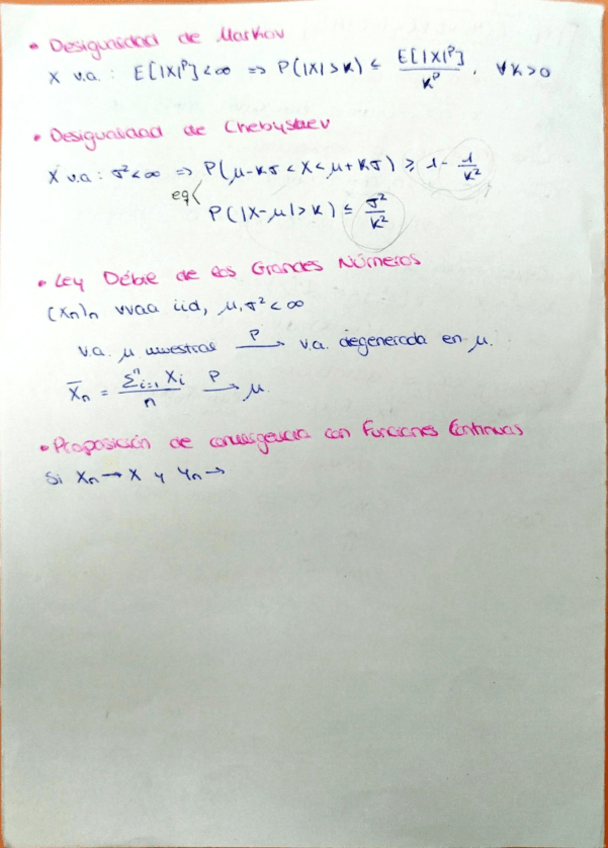 • Desigualdad de Markov
X v.a.: E[|X|^p] < ∞ ⇒ P(|X| > k) ≤ E[|X|^p] / k^p, ∀k > 0
• Desigualdad de Chebyshev
X v.a: σ² < ∞ ⇒ P(μ-kσ < X < μ+kσ) ≥ 1 - 1/k²
eq<
P(|X-μ| > k) ≤ σ²/k²
• Ley Débil de los Grandes Números
(Xn)n vvaa iid, μ, σ² < ∞
v.a. μ muestral —P→ v.a. degenerada en μ.
X̄n = Σⁿi=1 Xi / n —P→ μ
• Proposición de convergencia con Funciones Continuas
Si Xn → X y Yn →